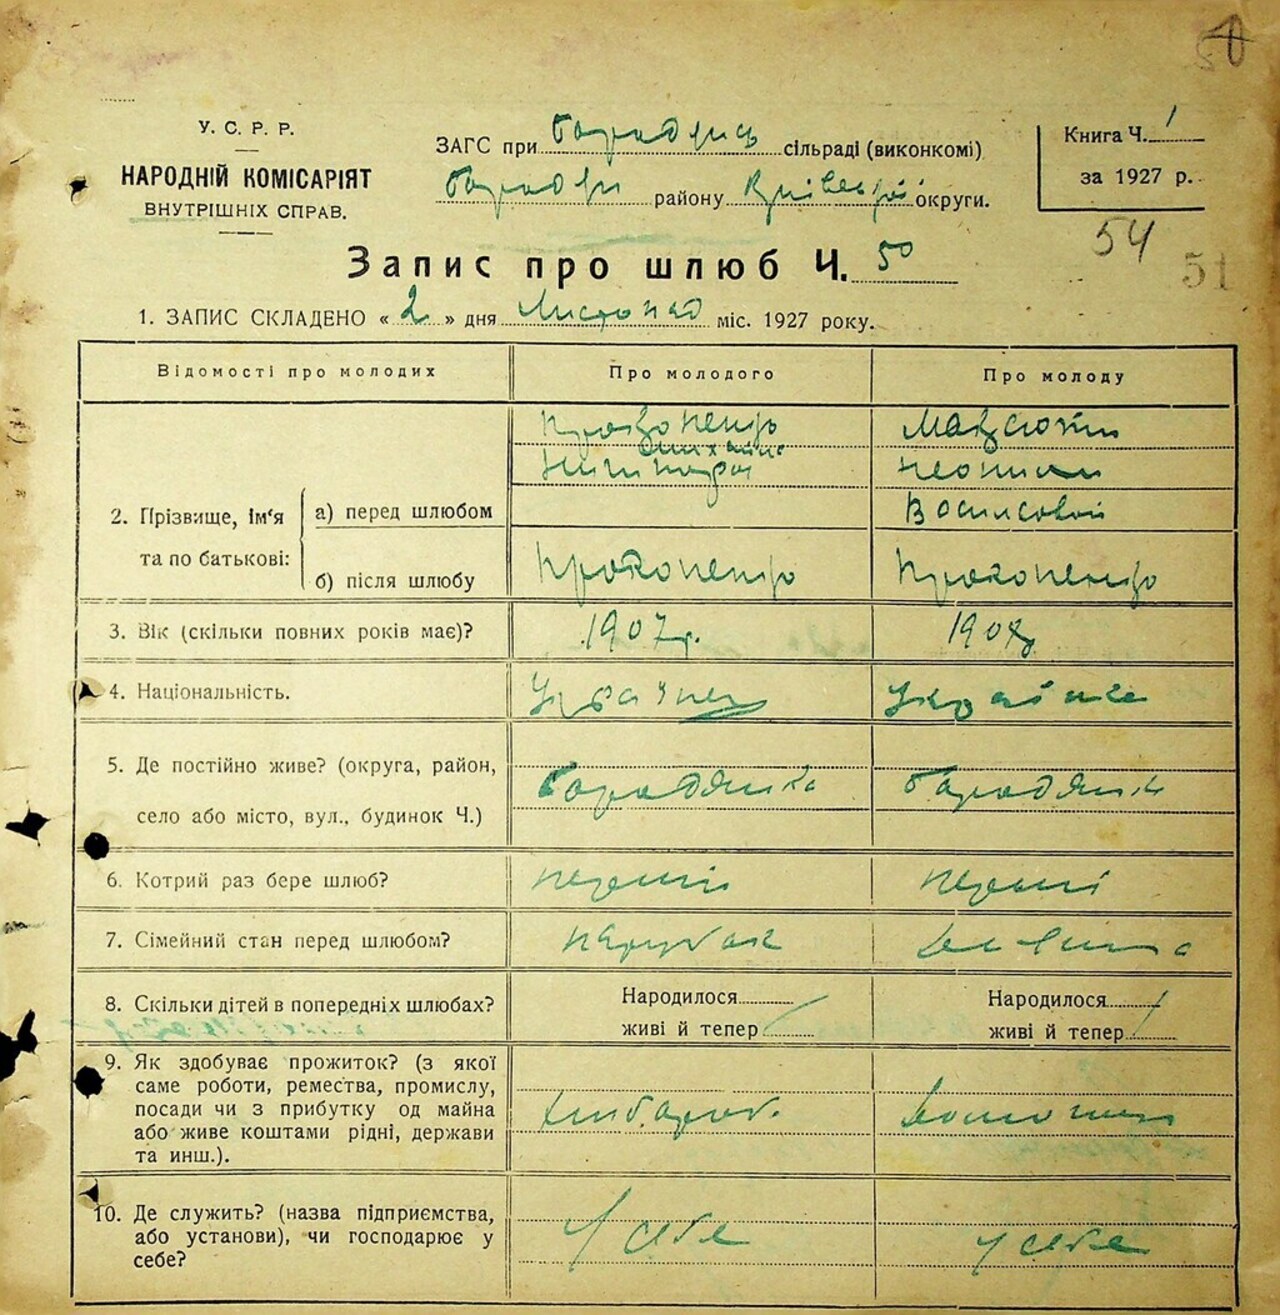 У. С. Р. Р.
НАРОДНІЙ КОМІСАРІЯТ
ВНУТРІШНІХ СПРАВ.
ЗАГС при сільраді (виконкомі)
району Київської округи.
Книга Ч. 1
за 1927 р.
54
51
Запис про шлюб Ч. 50
1. ЗАПИС СКЛАДЕНО « 2 » дня Листопад міс. 1927 року.
Відомості про молодих Про молодого Про молоду
2. Прізвище, ім‘я та по батькові:
а) перед шлюбом
Прокопенко
Василівой
б) після шлюбу Прокопенко Прокопенко
3. Вік (скільки повних років має)? 1907р. 1908
4. Національність. Українец Українка
5. Де постійно живе? (округа, район,
село або місто, вул., будинок Ч.) Бородянка Бородянка
6. Котрий раз бере шлюб? перший перший
7. Сімейний стан перед шлюбом? парубок дивчина
8. Скільки дітей в попередніх шлюбах? Народилося Народилося
живі й тепер живі й тепер
9. Як здобуває прожиток? (з якої
саме роботи, ремества, промислу,
посади чи з прибутку од майна
або живе коштами рідні, держави
та инш.).
хлибороб.
10. Де служить? (назва підприємства,
або установи), чи господарює у
себе?
У себе У себе